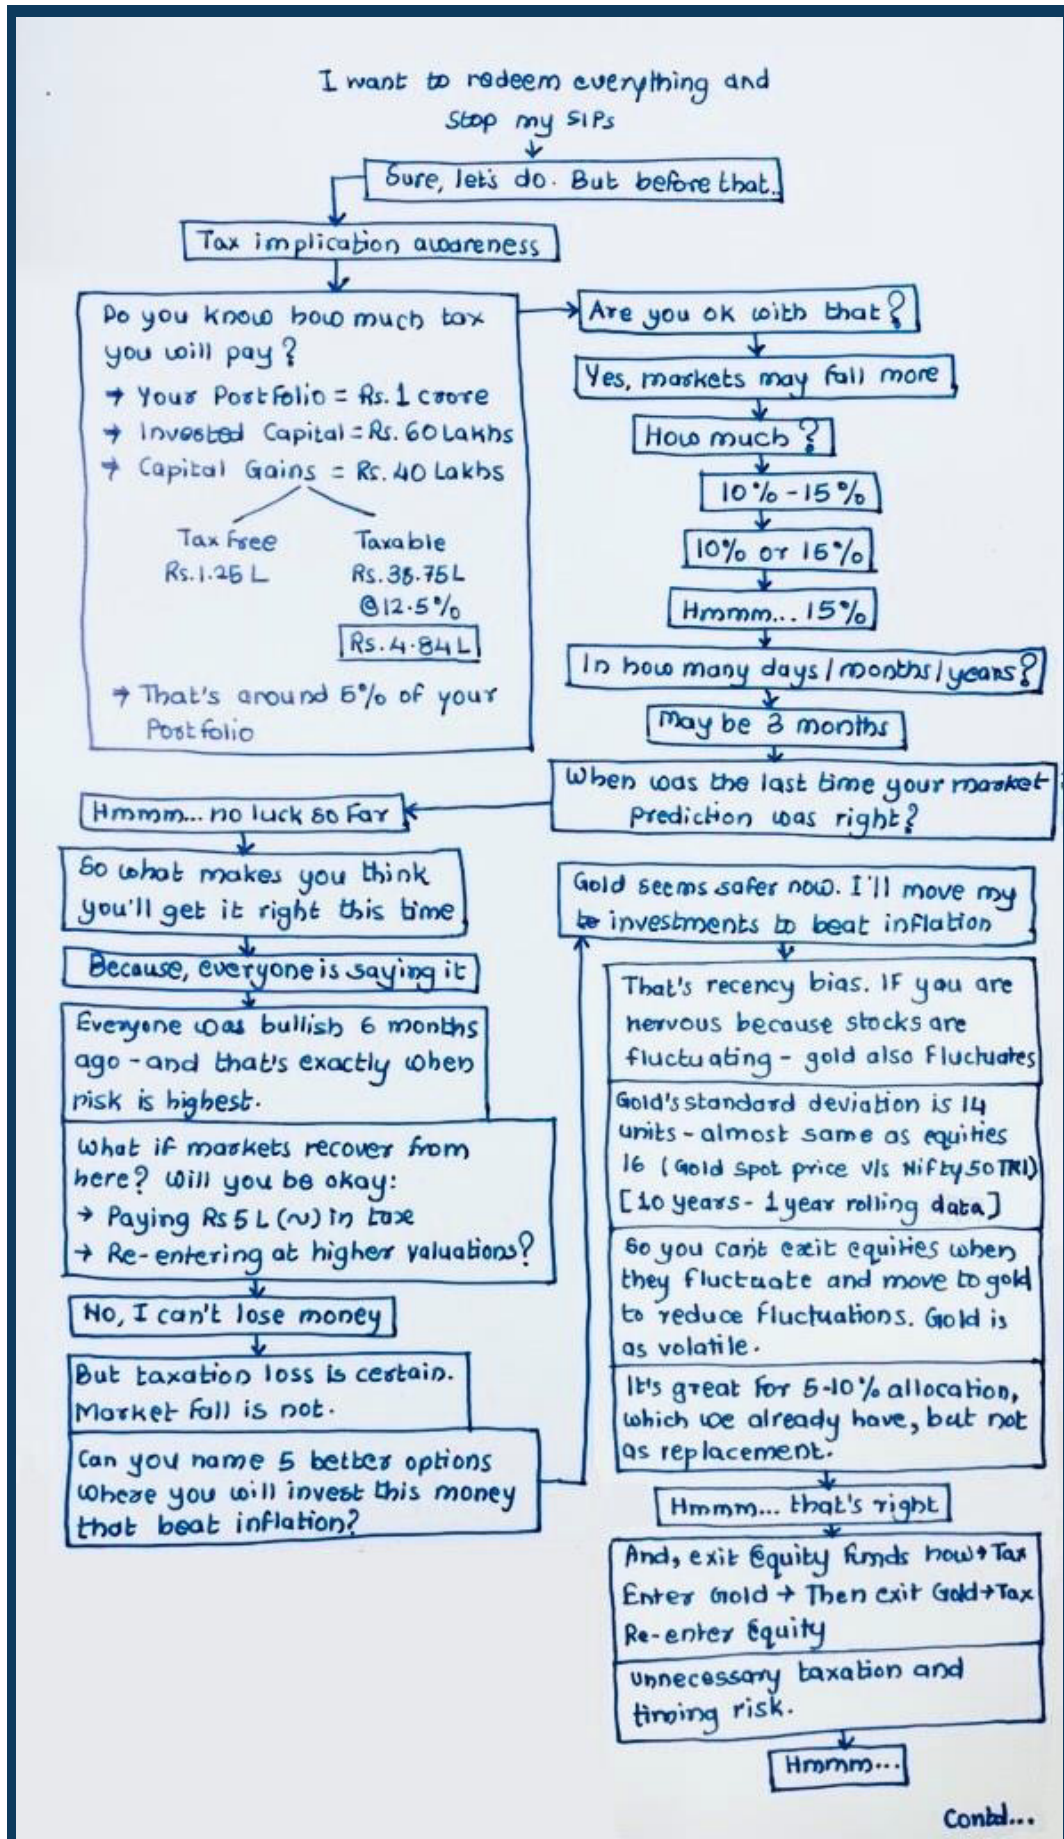 I want to redeem everything and
Stop my SIPs
Sure, let's do. But before that..
Tax implication awareness
Do you know how much tax
you will pay?
→ Your Portfolio = Rs. 1 crore
→ Invested Capital = Rs. 60 Lakhs
→ Capital Gains = Rs. 40 Lakhs
Tax Free Taxable
Rs. 1.25 L Rs. 38.75 L
@ 12.5%
Rs. 4.84 L
→ That's around 5% of your
Portfolio
Are you ok with that?
Yes, markets may fall more
How much?
10% - 15%
10% or 15%
Hmmm... 15%
In how many days / months / years?
May be 3 months
When was the last time your market
prediction was right?
Hmmm... no luck so far
So what makes you think
you'll get it right this time
Because, everyone is saying it
Everyone was bullish 6 months
ago - and that's exactly when
risk is highest.
What if markets recover from
here? Will you be okay:
→ Paying Rs 5 L (~) in taxe
→ Re-entering at higher valuations?
No, I can't lose money
But taxation loss is certain.
Market fall is not.
Can you name 5 better options
where you will invest this money
that beat inflation?
Gold seems safer now. I'll move my
investments to beat inflation
That's recency bias. If you are
nervous because stocks are
fluctuating - gold also fluctuates
Gold's standard deviation is 14
units - almost same as equities
16 (Gold spot price v/s Nifty 50 TRI)
[10 years - 1 year rolling data]
So you can't exit equities when
they fluctuate and move to gold
to reduce fluctuations. Gold is
as volatile.
It's great for 5-10% allocation,
which we already have, but not
as replacement.
Hmmm... that's right
And, exit Equity funds now → Tax
Enter Gold → Then exit Gold → Tax
Re-enter Equity
Unnecessary taxation and
timing risk.
Hmmm...
Contd...